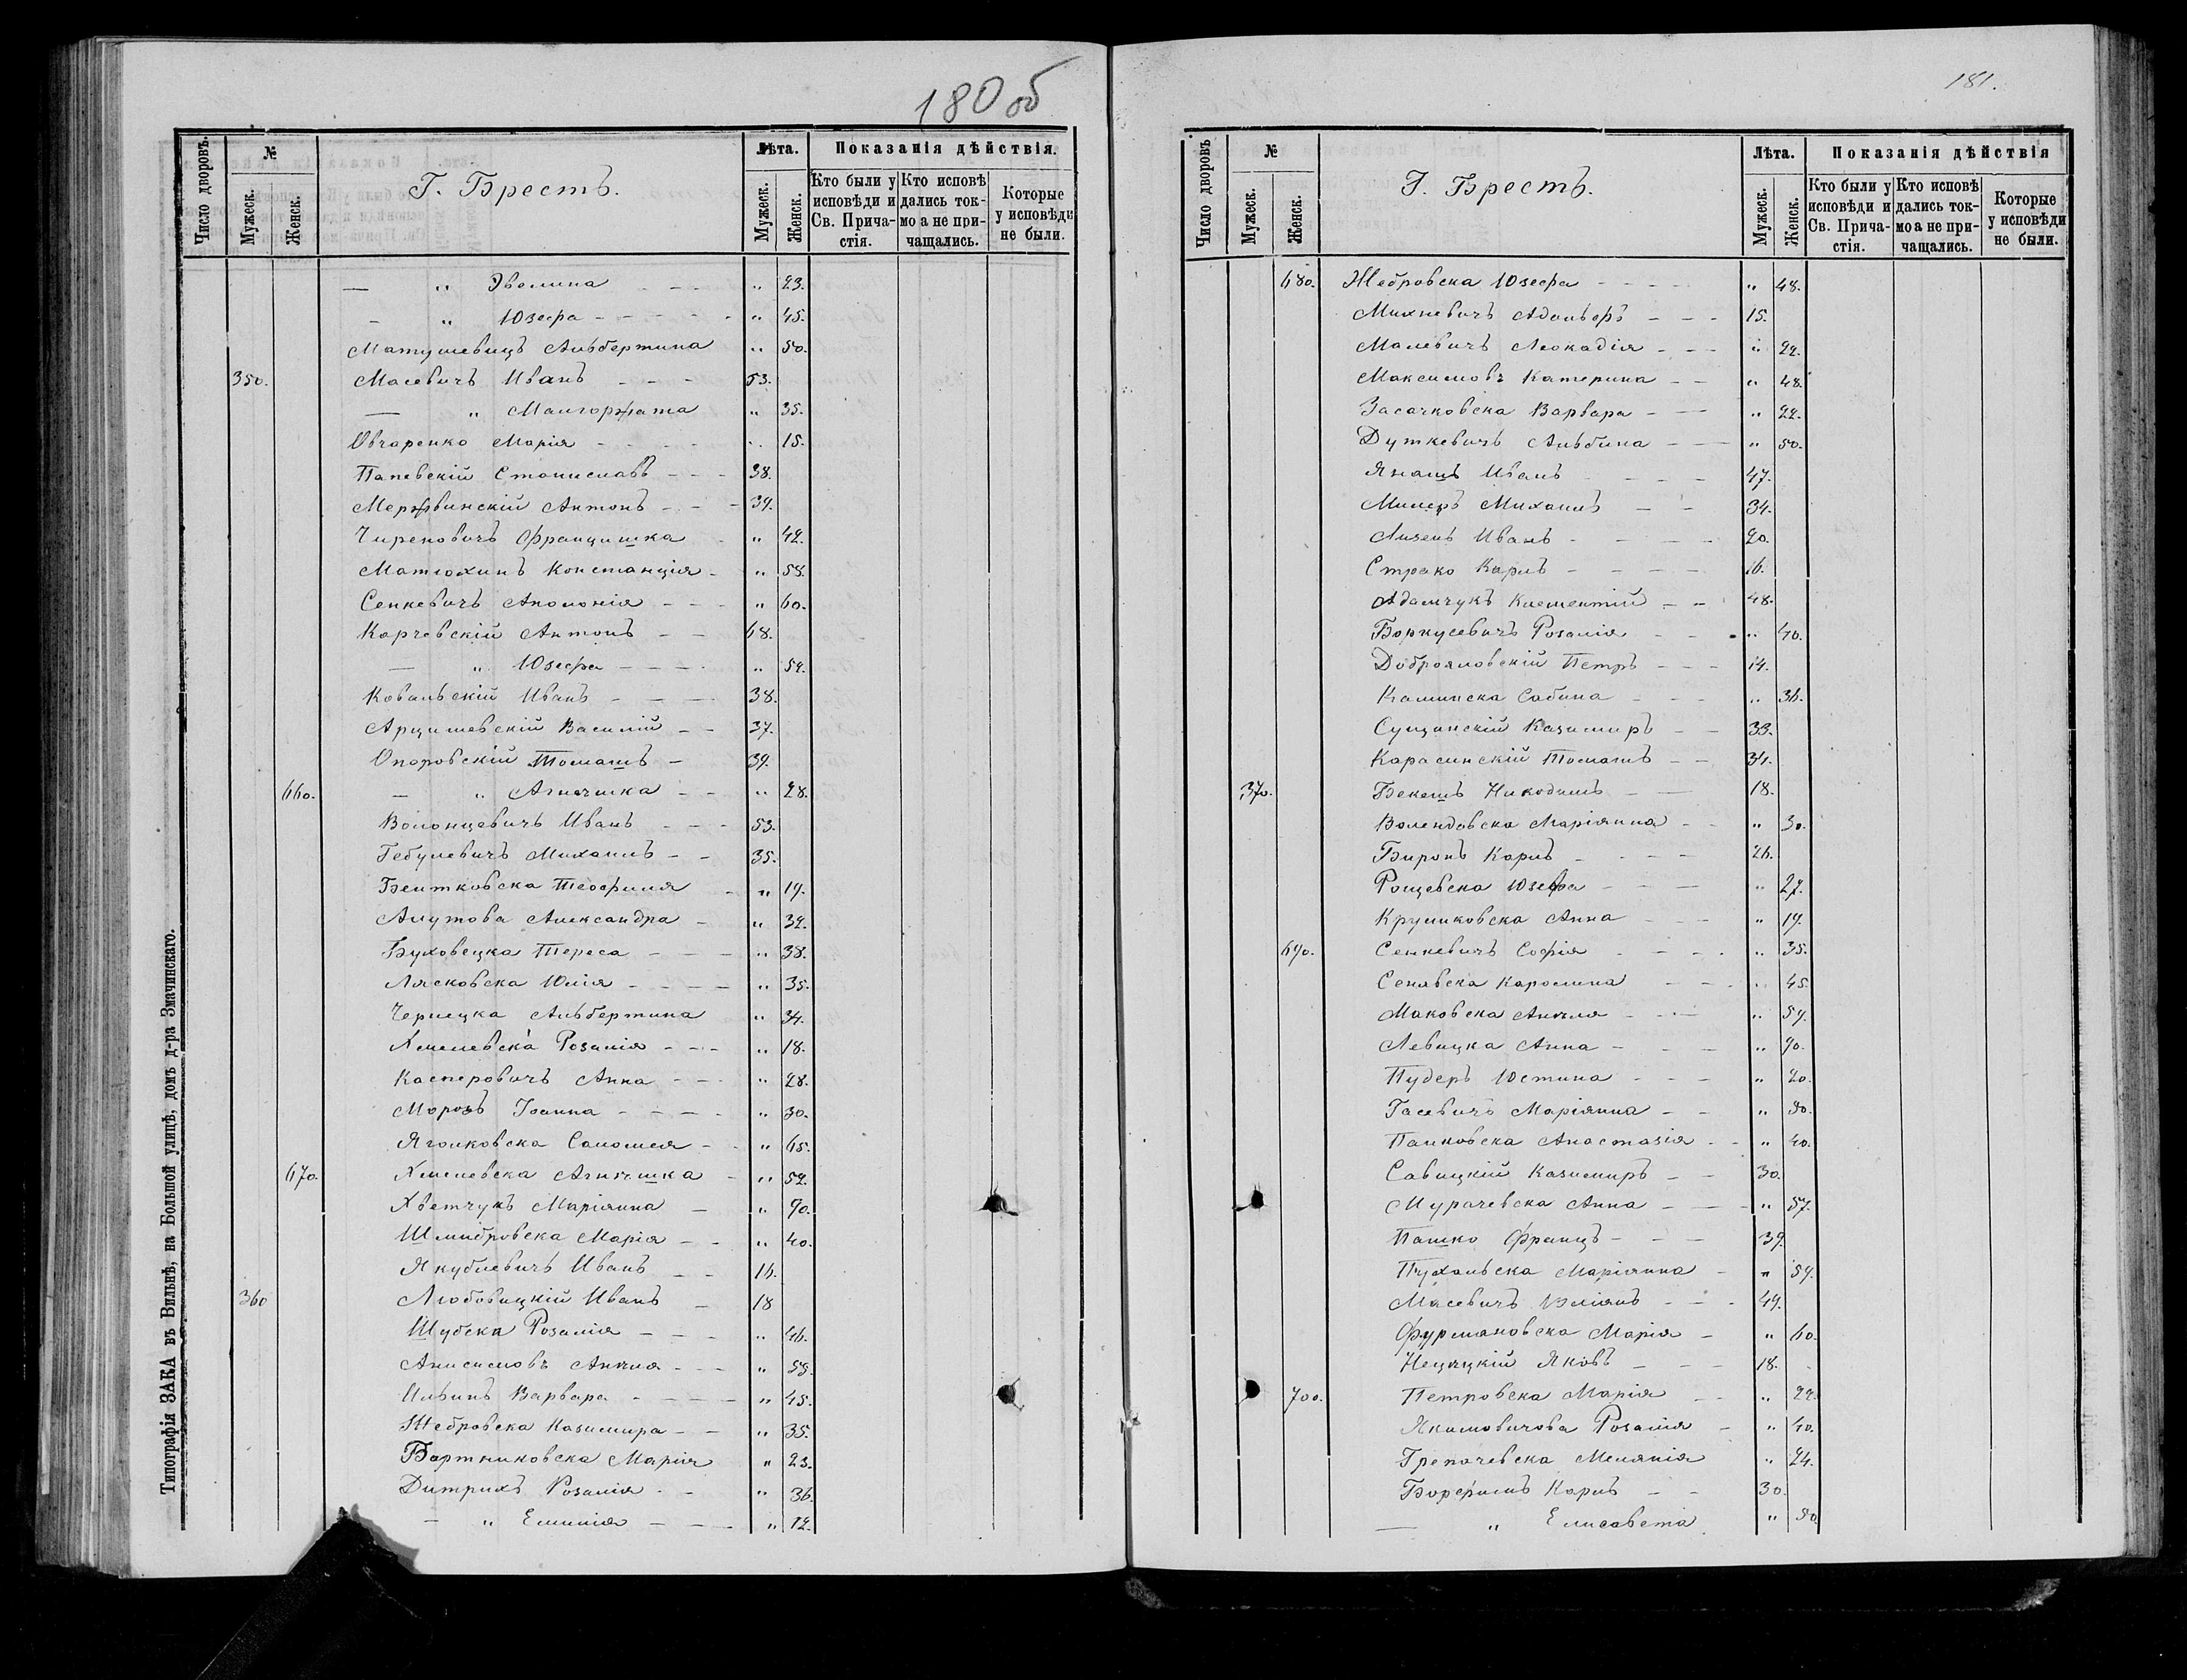 180 об
Число дворовъ.
№
Мужеск.
Женск.
Г. Брестъ.
Лѣта.
Мужеск.
Женск.
Показанія дѣйствія.
Кто были у исповѣди и Св. Прича-стія.
Кто исповѣ дались ток-мо а не при-чащались.
Которые у исповѣди не были.
— " Эвелина - - - " 23.
- " Юзефа - - - - - " 45.
Матушевицъ Альбертина " 50.
350. Масевичъ Иванъ - - - 53.
— " Малгоржата " 35.
Овчаренко Марія - - - - " 15.
Папевскій Станиславъ - - - 38.
Мержвинскій Антонъ - - - 39.
Чиреновичъ Францишка - " 42.
Матюхинъ Констанція - " 58.
Сенкевичъ Аполонія - - - " 60.
Карчевскій Антонъ - - 68.
— " Юзефа - - - - " 52.
Ковальскій Иванъ - - - 38.
Арцишевскій Василій - - 37.
Опоровскій Томашъ - 39.
660. - " Агнешка - - " 28.
Волонцевичъ Иванъ - - - 53.
Гебулевичъ Михаилъ - - 35.
Бентковска Теофиля - " 19.
Алутова Александра - " 32.
Буховецка Тереса - - - " 38.
Лясковска Юлія - - - - " 35.
Чернецка Альбертина " 34.
Хмелевска Розалія - - - " 18.
Касперовичъ Анна - - - " 28.
Морозъ Іоанна - - - - " 30.
Яголковска Саломея - - " 65.
670. Хмелевска Агнешка - " 52.
Хветчукъ Маріянна - " 90.
Шмидровска Марія - - " 40.
Якубчевичъ Иванъ - - 16.
360 Любовицкій Иванъ - 18
Шубска Розалія - - - " 46.
Анисимовъ Анеля - - - " 55.
Ильинъ Варвара - - - - " 45.
Жебровска Казимира - - " 35.
Бартниковска Марія " 23.
Дитрихъ Розалія - - " 36.
- " Емилія - - - " 12.
Типографія ЗАКА въ Вильнѣ, на Большой улицѣ, домъ д-ра Змачинскаго.
181.
Число дворовъ
№
Мужеск.
Женск.
Г. Брестъ.
Лѣта.
Мужеск.
Женск.
Показанія дѣйствія
Кто были у исповѣди и Св. Прича-стія.
Кто исповѣ дались ток-мо а не при-чащались.
Которые у исповѣди не были.
680. Жебровска Юзефа - - - - " 48.
Михневичъ Адольфъ - - - 15.
Малевичъ Леокадія - - - " 22.
Максимовъ Катерина - - " 48.
Засачковска Варвара - - " 22.
Дуткевичъ Альбина - - " 50.
Янашъ Иванъ - - - - 47.
Милеръ Михаилъ - - 34.
Лизенъ Иванъ - - - - 20.
Страко Карлъ - - - - 16.
Адамчукъ Клементій - - 48.
Боркусевичъ Розалія - - - " 40.
Доброяловскій Петръ - - - 14.
Каминска Сабина - - - " 36.
Сущинскій Казимиръ - - 33.
Карасинскій Томашъ - - 34.
370. Бекешъ Никодимъ - - 18.
Волендовска Маріянна - - " 30.
Биронъ Карлъ - - - - 26.
Рощевска Юзефа - - - " 27.
Круликовска Анна - - - " 19.
690. Сенкевичъ Софія - - - - " 35.
Сенявска Каролина - - - " 45.
Маковска Анеля - - - " 59.
Левицка Анна - - - " 90.
Пудеръ Юстина - - - " 20.
Гасевичъ Маріянна - - " 80.
Палковска Анастазія - - " 40.
Савицкій Казимиръ - - 30.
Мурачевска Анна - - - " 57.
Пашко Францъ - - - 39.
Пухальска Маріянна - " 59.
Масевичъ Юліянъ - - - 49.
Фурмановска Марія - " 60.
Нецяцкій Яковъ - - - 18.
700. Петровска Марія - - " 22.
Якимовичова Розалія - " 40.
Грепачевска Меланія " 24.
Борсримъ Карлъ - - 30.
— " Елисавета " 50.